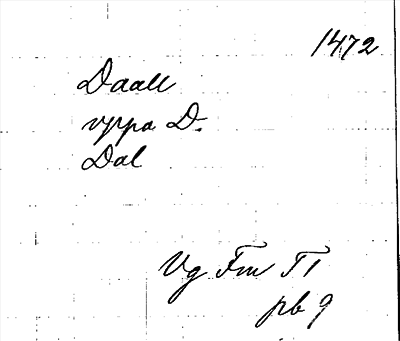 1472
Daall
uppa D.
Dal
Vg Fm T1
pb 9